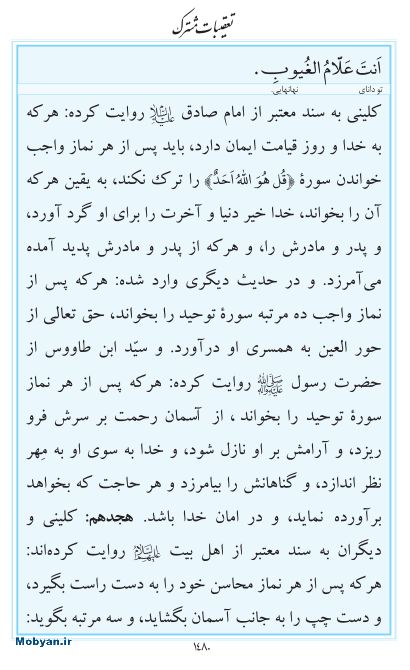 تعقیبات مشترک
اَنتَ عَلّامُ الغُیوبِ .
تو دانای نهانهایی.
کلینی به سند معتبر از امام صادق علیه‌السلام روایت کرده: هرکه
به خدا و روز قیامت ایمان دارد، باید پس از هر نماز واجب
خواندن سورۀ ﴿قُل هُوَ اللهُ اَحَدٌ﴾ را ترك نکند، به یقین هرکه
آن را بخواند، خدا خیر دنیا و آخرت را برای او گرد آورد،
و پدر و مادرش را، و هرکه از پدر و مادرش پدید آمده
می‌آمرزد. و در حدیث دیگری وارد شده: هرکه پس از هر
نماز واجب ده مرتبه سورۀ توحید را بخواند، حق تعالی از
حور العین به همسری او درآورد. و سیّد ابن طاووس از
حضرت رسول ﷺ روایت کرده: هرکه پس از هر نماز
سورۀ توحید را بخواند ، از آسمان رحمت بر سرش فرو
ریزد، و آرامش بر او نازل شود، و خدا به سوی او به مِهر
نظر اندازد، و گناهانش را بیامرزد و هر حاجت که بخواهد
برآورده نماید، و در امان خدا باشد. هجدهم: کلینی و
دیگران به سند معتبر از اهل بیت علیهم‌السلام روایت کرده‌اند:
هرکه پس از هر نماز محاسن خود را به دست راست بگیرد،
و دست چپ را به جانب آسمان بگشاید، و سه مرتبه بگوید:
۱۴۸۰
Mobyan.ir